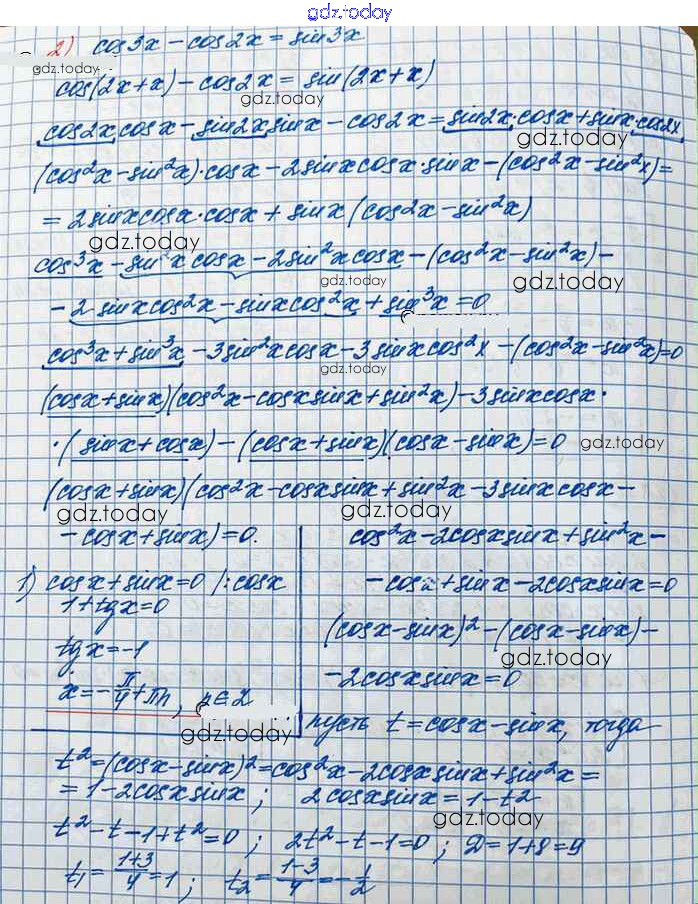 gdz.today
2) cos3x - cos2x = sin3x
gdz.today
cos(2x+x) - cos2x = sin(2x+x)
gdz.today
cos2x cosx - sin2x sinx - cos2x = sin2x·cosx + sinx·cos2x
gdz.today
(cos²x - sin²x)·cosx - 2sinxcosx·sinx - (cos²x - sin²x) =
= 2sinxcosx·cosx + sinx(cos2x - sin²x)
gdz.today
cos³x - sin²x cosx - 2sin²x cosx - (cos²x - sin²x) -
gdz.today
- 2 sinxcos²x - sinxcos²x + sin³x = 0
cos³x + sin³x - 3sin²xcosx - 3sinxcos²x - (cos²x - sin²x) = 0
gdz.today
(cosx + sinx)(cos²x - cosxsinx + sin²x) - 3sinxcosx·
·(sinx + cosx) - (cosx + sinx)(cosx - sinx) = 0 gdz.today
(cosx + sinx)(cos²x - cosxsinx + sin²x - 3sinxcosx -
gdz.today gdz.today
- cosx + sinx) = 0.
1) cosx + sinx = 0 /:cosx
1 + tgx = 0
tgx = -1
x = -π/4 + πn, n∈Z
gdz.today
cos²x - 2cosxsinx + sin²x -
- cosx + sinx - 2cosxsinx = 0
(cosx - sinx)² - (cosx - sinx) -
gdz.today
- 2cosxsinx = 0
пусть t = cosx - sinx, тогда
t² = (cosx - sinx)² = cos²x - 2cosxsinx + sin²x =
= 1 - 2cosxsinx ; 2cosxsinx = 1 - t²
gdz.today
t² - t - 1 + t² = 0 ; 2t² - t - 1 = 0 ; D = 1 + 8 = 9
t₁ = (1+3)/4 = 1 ; t₂ = (1-3)/4 = -1/2